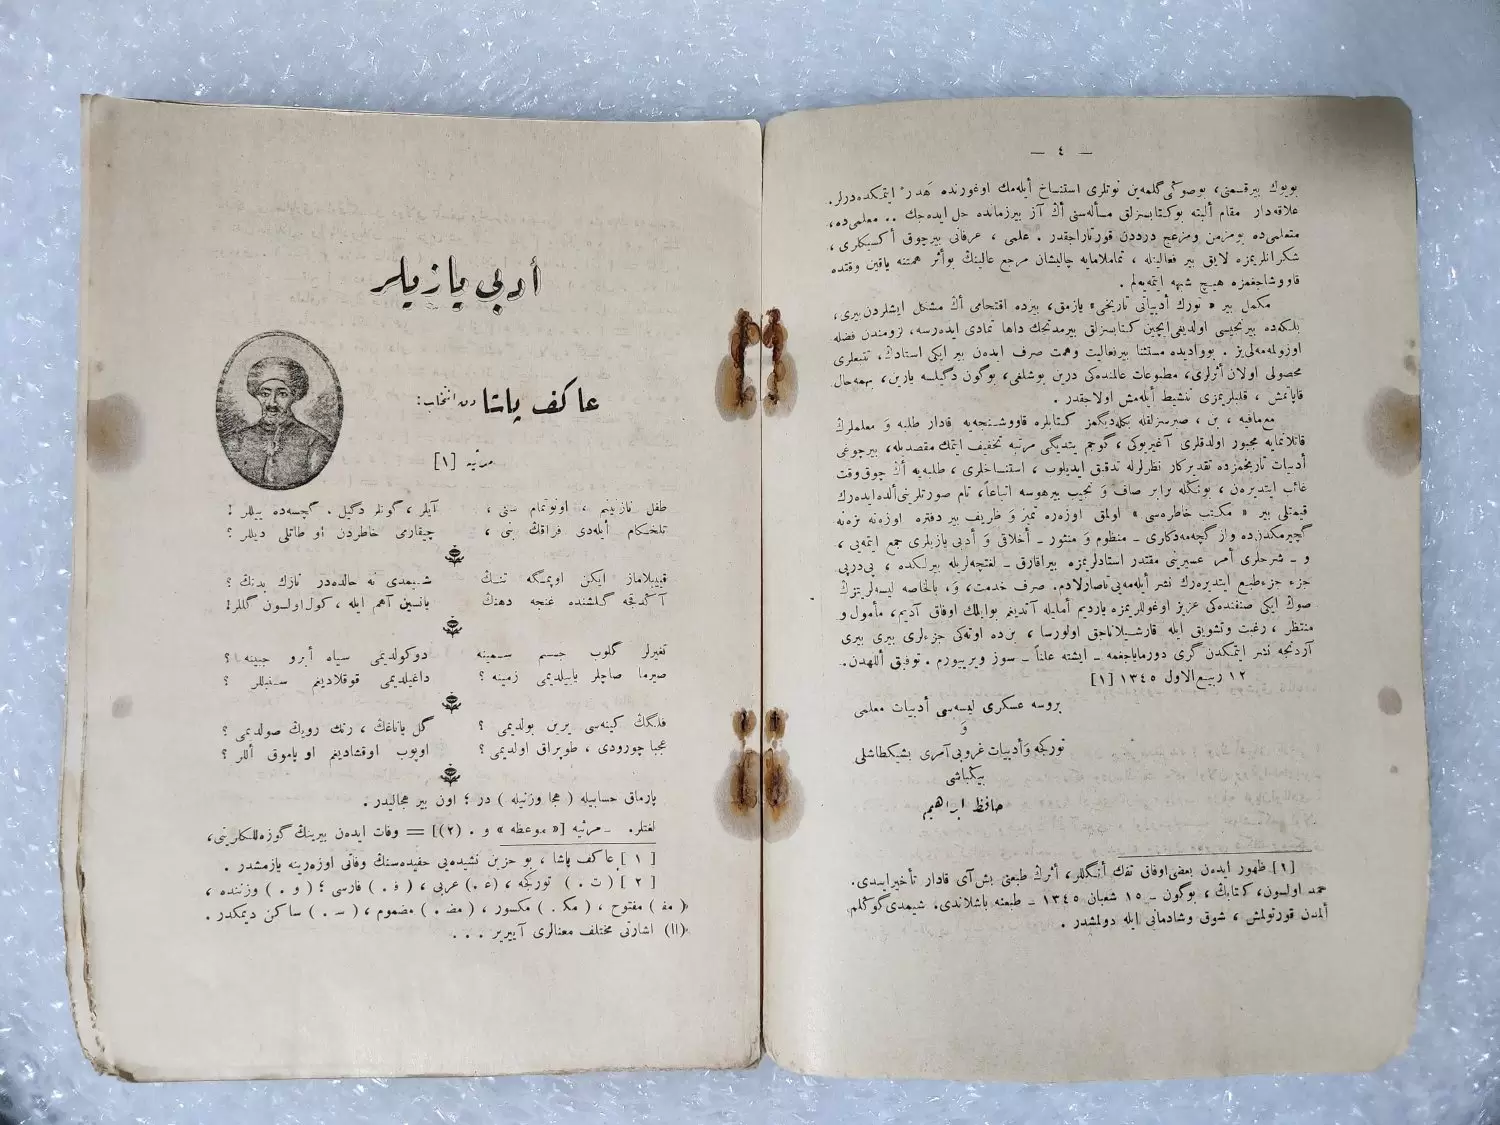 — ٤ —
بویوك بیرقسمنی، بوصوڭی‌گلمه‌ین نوتلری استنساخ أیله‌مك اوغورنده هَدر ایتمكده‌درلر.
علاقه‌دار مقام ألبته بوكتابسزلق مسأله‌سنی أڭ آز بیرزمانده حل ایده‌جك .. معلمی‌ده،
متعلمی‌ده بومزمن ومزعج درددن قورتاراجقدر . علمی ، عرفانی بیرچوق أكسیكلری ،
شكرانلریمزه لایق بیر فعالیتله ، تماملامایه چالیشان مرجع عالینڭ بوأثر همتنه یاقین وقتده
قاووشاجغمزه هیچ شبهه ایتمه‌یه‌لم .
مكمل بیر « تورك أدبیاتی تاریخی» یازمق، بیزده اقتحامی أڭ مشكل ایشلردن‌بیری،
بلكه‌ده بیرنجیسی اولدیغی‌ایچین كتابسزلق بیرمدتجك داها تمادی ایده‌رسه، لزومندن فضله
اوزولمه‌مه‌لی‌یز . بووادیده مستثنا بیرفعالیت وهمت صرف ایده‌ن بیر ایكی استادڭ، تتبعلری
محصولی اولان أثرلری، مطبوعات عالمنده‌كی درین بوشلغی، بوگون دگیلسه یارین، بهمه‌حال
قاپاتمش ، قلبلریمزی تنشیط أیله‌مش اولاجقدر .
مع‌مافیه ، بن ، صبرسزلقله بكله‌دیگمز كتابلره قاووشنجه‌یه قادار طلبه وَ معلملرڭ
قاتلانمایه مجبور اولدقلری آغیریوكی ، گوجم یتدیگی مرتبه تخفیف ایتمك مقصدیله، بیرچوغی
أدبیات تاریخمزده تقدیركار نظرلرله تدقیق ایدیلوب ، استنساخلری ، طلبه‌یه أڭ چوق‌وقت
غائب ایتدیره‌ن ، بونكله برابر صاف وَ نجیب بیرهوسه اتباعاً، تام صورتلرینی‌ألده‌ایده‌رك
قیمتلی بیر « مكتب خاطره‌سی » اولمق اوزه‌ره تمیز وَ ظریف بیر دفتره اوزه‌نه بزه‌نه
گچیرمكدن‌ده واز گچه‌مه‌دكاری ـ منظوم وَ منثور ـ أخلاقی وَ أدبی یازیلری جمع ایتمه‌یی ،
و ـ شرحلری أمر عسیرینی مقتدر استادلریمزه بیراقارق ـ لغتجه‌لریله بیرلكده ، پی‌درپی
جزء جزءطبع ایتدیره‌رك نشر أیله‌مه‌یی‌تاصارلادم. صرف خدمت، وَ، بالخاصه لیسه‌لریمزڭ
صوڭ ایكی صنفنده‌كی عزیز اوغوللریمزه یاردیم أملیله آتدیغم بوایلك اوفاق آدیم، مأمول و
منتظر ، رغبت وتشویق ایله قارشیلاناجق اولورسا ، بن‌ده اوته‌كی جزءلری بیری بیری
آردنجه نشر ایتمكدن گری دورمایاجغمه ـ ایشته علناً ـ سوز ویرییورم . توفیق أللهدن.
١٢ ربیع‌الاول ١٣٤٥ [١]
بروسه عسكری لیسه‌سی أدبیات معلمی
وَ
توركجه وَأدبیات غروپی‌آمری بشیكطاشلی
بیكباشی
حافظ ابراهیم
[١] ظهور ایده‌ن بعضی‌اوفاق تفك أنگللر، أثرڭ طبعنی بش‌آی قادار تأخیرایتدی.
حمد اولسون، كتابڭ ، بوگون ـ ١٥ شعبان ١٣٤٥ ـ طبعنه باشلاندی. شیمدی‌گوڭلم
ألمدن قورتولمش ، شوق وشادمانی ایله دولمشدر .
أدبی یازیلر
عاكف پاشا دن انتخاب:
مرثیه [١]
طفل نازنینم ، اونوتمام سنی ، آیلر ، گونلر دگیل . گچسه‌ده ییللر !
تلخكام أیله‌دی فراقڭ بنی ، چیقارمی خاطردن أو طاتلی دیللر ؟
قییلاماز ایكن اوپمگه تنڭ شیمدی نه حالده‌در نازك بدنڭ ؟
آڭدقجه گلشنده غنجه دهنڭ یانسین آهم ایله ، كول‌اولسون گللر!
تغیرلر گلوب جسم سمینه دوكولدیمی سیاه أبرو جبینه ؟
صیرما صاچلر یاییلدیمی زمینه ؟ داغیلدیمی قوقلادیغم سنبللر ؟
فلگڭ كینه‌سی یرین بولدیمی ؟ گل یاناغڭ ، رنك رویڭ صولدیمی ؟
عجبا چورودی ، طوپراق اولدیمی ؟ اوپوب اوقشادیغم او پاموق أللر ؟
پارماق حسابیله ( هجا وزنیله ) در ؛ اون بیر هجالیدر .
لغتلر. ـ مرثیه [« موعظه » و . (٢)] = وفات ایده‌ن بیرینك گوزه‌للكلرینی،
[ ١ ] عاكف پاشا ، بو حزین نشیده‌یی حفیده‌سنڭ وفاتی اوزه‌رینه یازمشدر .
[ ٢ ] ( ت . ) توركجه ، (ع .) عربی ، ( ف . ) فارسی ؛ ( و . ) وزننده ،
( مف ) مفتوح ، ( مك . ) مكسور ، ( مض . ) مضموم ، ( س . ) ساكن دیمكدر .
(II) اشارتی مختلف معنالری آییریر . . .